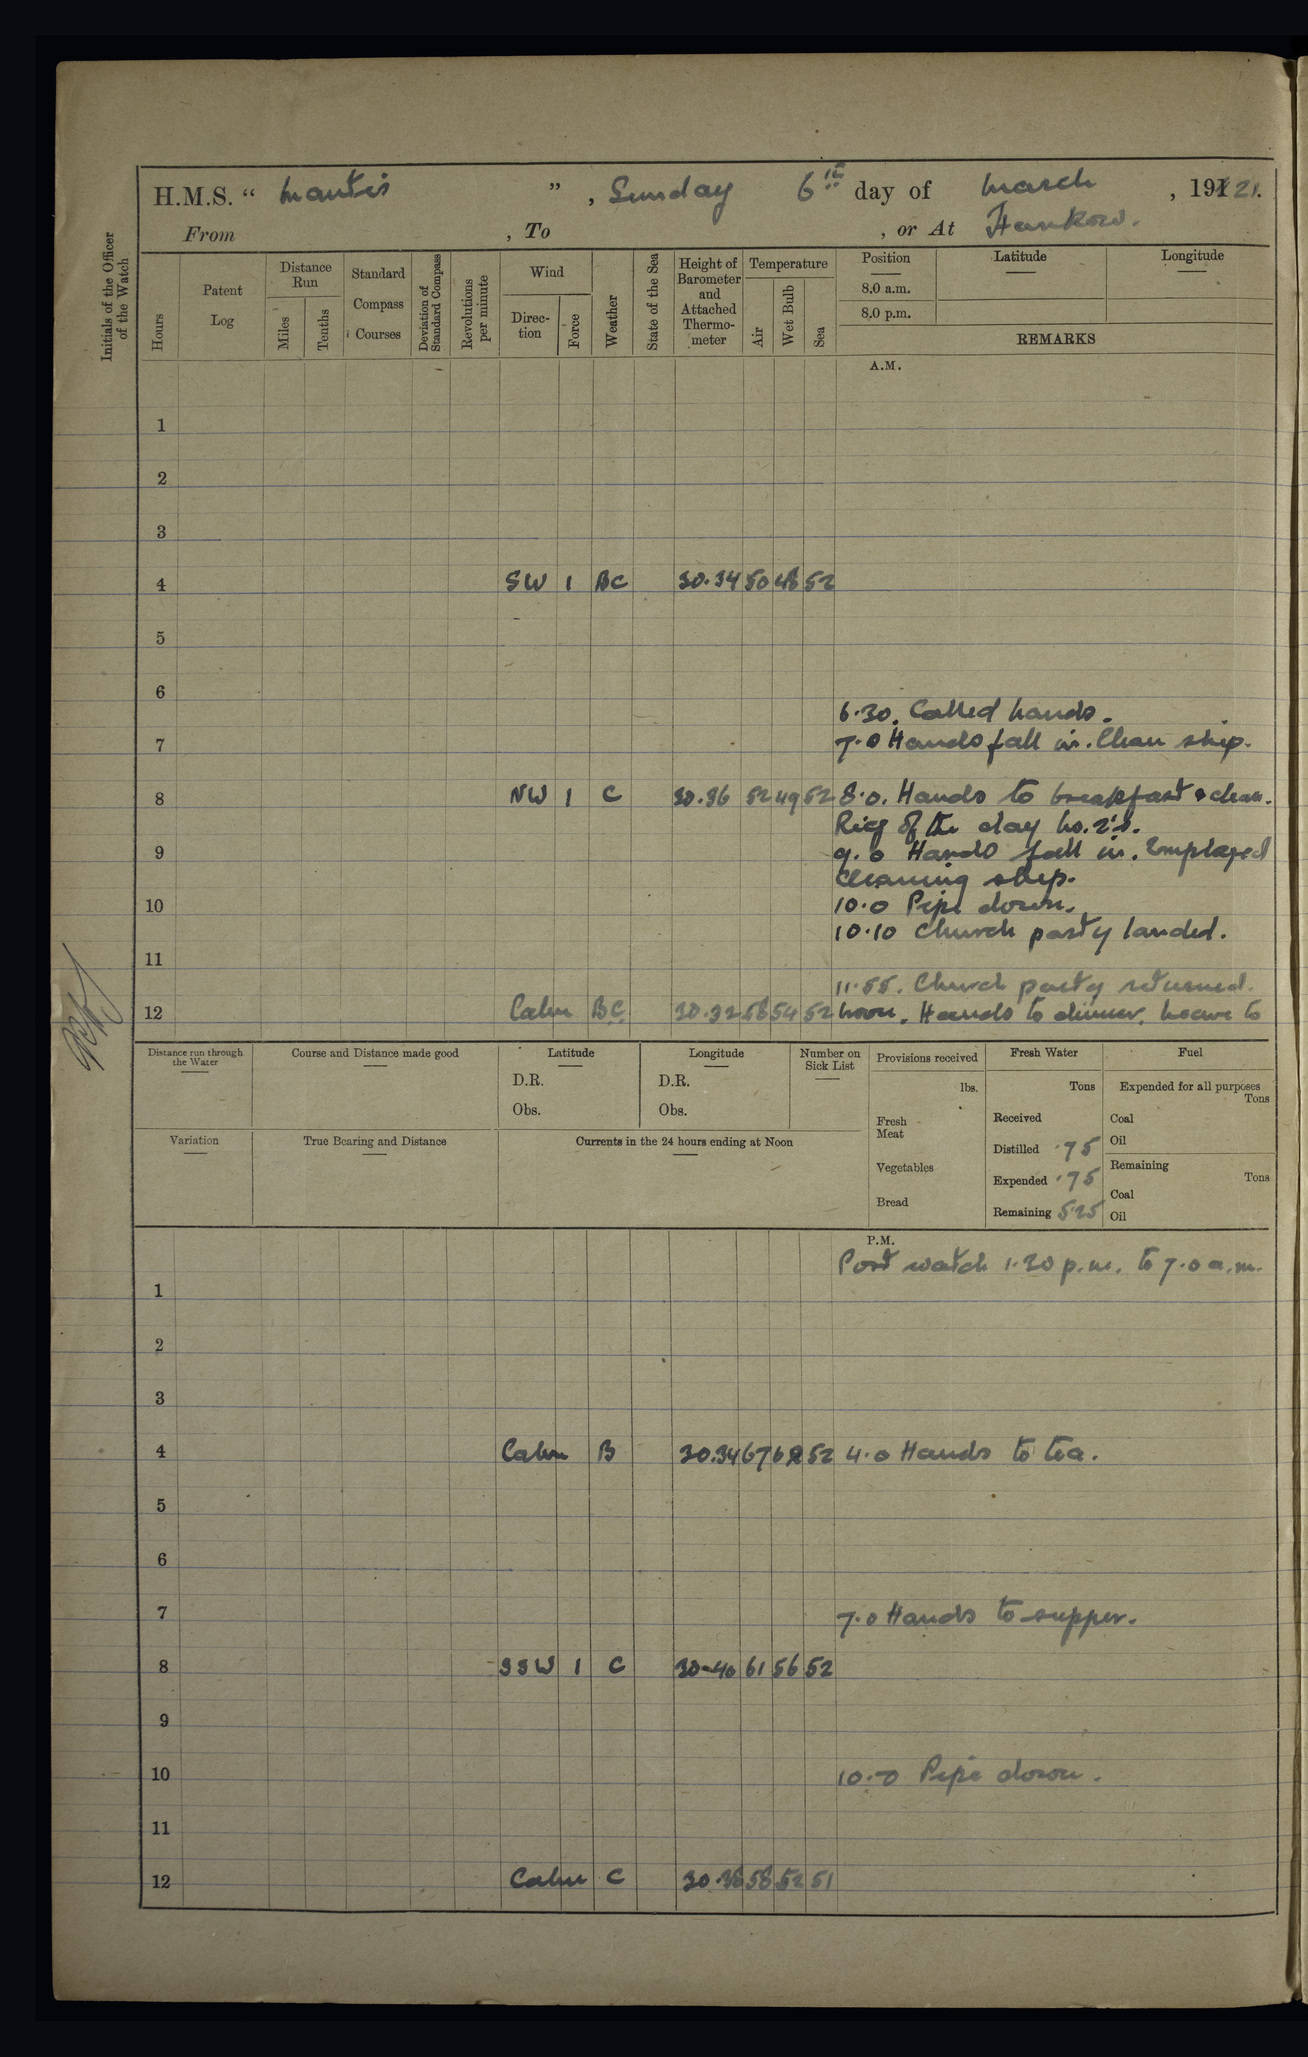 H.M.S. “ Mantis ” , Sunday 6th day of March , 1921.
From , To , or At Hankow.
Initials of the Officer of the Watch
Hours
Patent Log
Distance Run
Miles
Tenths
Standard Compass Courses
Deviation of Standard Compass
Revolutions per minute
Wind
Direction
Force
Weather
State of the Sea
Height of Barometer and Attached Thermometer
Temperature
Air
Wet Bulb
Sea
Position
8.0 a.m.
8.0 p.m.
Latitude
Longitude
REMARKS
A.M.
1
2
3
4 SW 1 BC 30.34 50 48 52
5
6
6.30. Called hands.
7 7.0 Hands fall in. Clean ship.
8 NW 1 C 30.36 52 49 52 8.0. Hands to breakfast & clean.
Rig of the day No. 2's.
9 9.0 Hands fall in. Employed
cleaning ship.
10 10.0 Pipe down.
10.10 Church party landed.
11
11.55. Church party returned.
12 Calm BC 30.32 58 54 52 Noon. Hands to dinner, leave to
Distance run through the Water
Course and Distance made good
Latitude
D.R.
Obs.
Longitude
D.R.
Obs.
Number on Sick List
Provisions received
lbs.
Fresh Meat
Vegetables
Bread
Fresh Water
Tons
Received
Distilled .75
Expended .75
Remaining 5.25
Fuel
Expended for all purposes
Tons
Coal
Oil
Remaining
Tons
Coal
Oil
Variation
True Bearing and Distance
Currents in the 24 hours ending at Noon
P.M.
Port watch 1.30 p.m. to 7.0 a.m.
1
2
3
4 Calm B 30.34 67 62 52 4.0 Hands to tea.
5
6
7 7.0 Hands to supper.
8 SSW 1 C 30.40 61 56 52
9
10 10.0 Pipe down.
11
12 Calm C 30.38 58 52 51